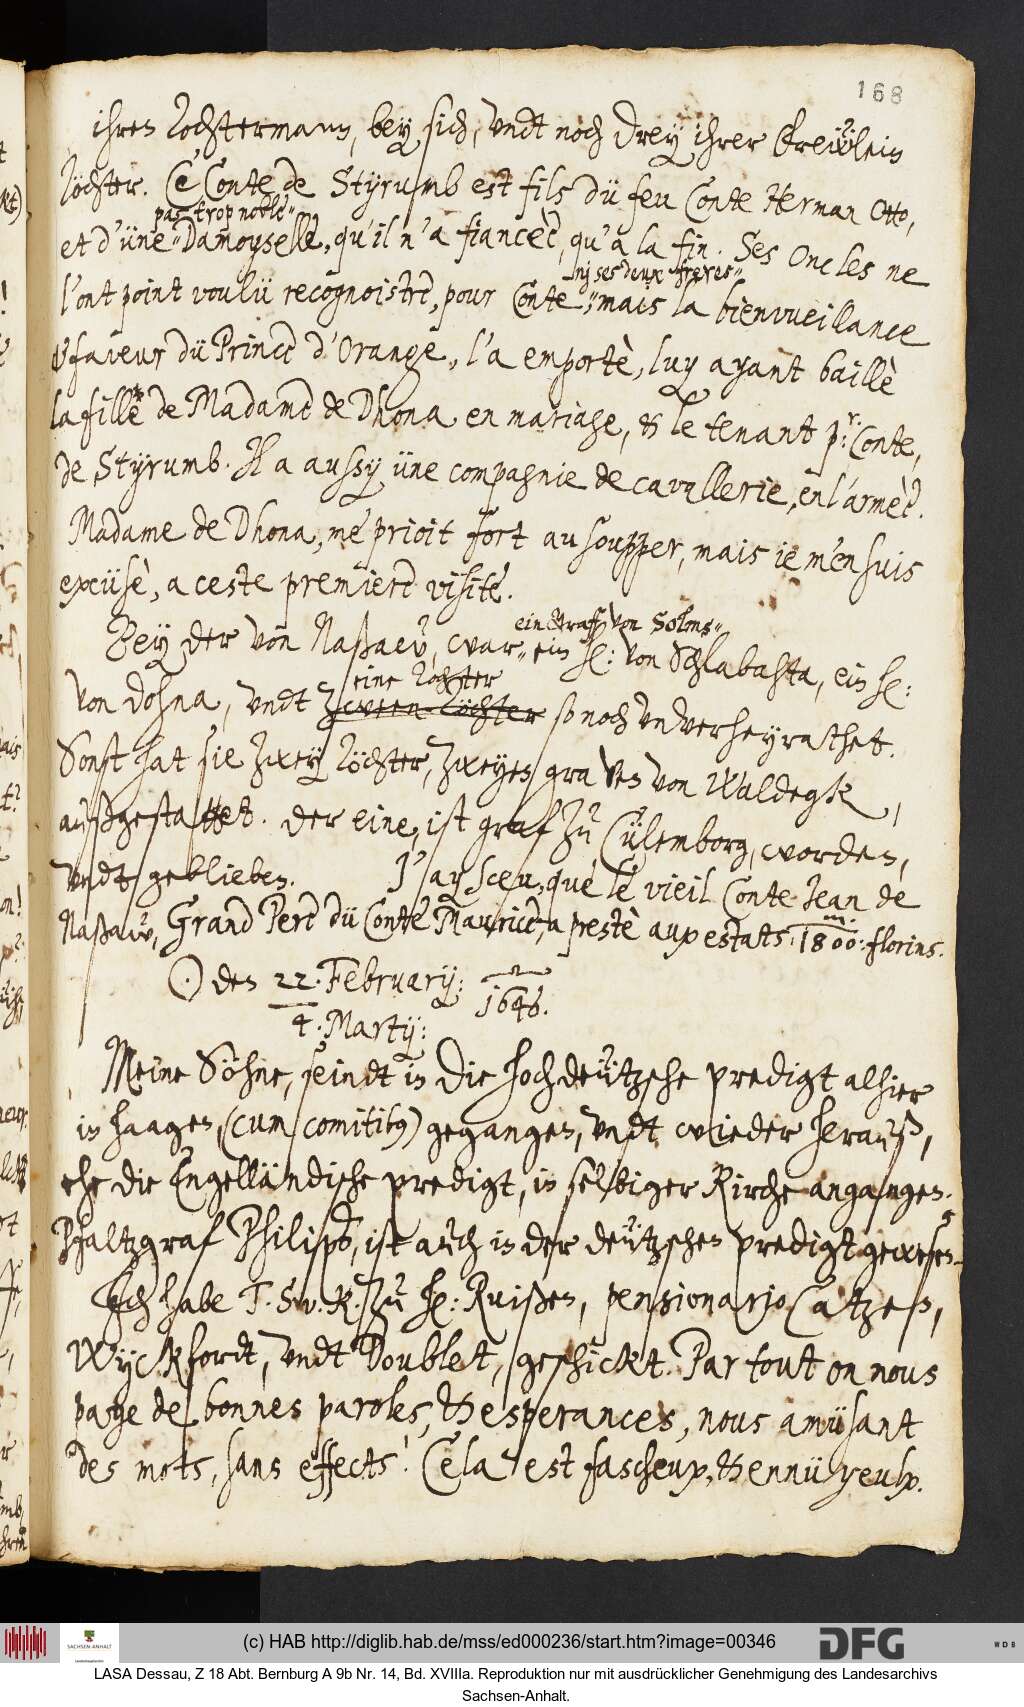 168
ihren Tochtermann, bey sich, undt noch drey ihrer Freẅlein
Töchter. Ce Conte de Styrumb est fils dü feu Conte Herman Otto,
pas trop noble"
et d'üne" Damoyselle, qu'il n'a fianceè, qu'a la fin. Ses Oncles ne
ny ses deux freres"
l'ont point voulü recognoistre, pour Conte", mais la bienvueillance
& faveur dü Prince d'Orange, l'a emportè, luy ayant baillè
la fille de Madame de Dhona en mariage, & le tenant p:r Conte,
de Styrumb. Il a aussy üne compagnie de cavallerie, en l'armèe.
Madame de Dhona, me prioit fort au soupper, mais ie m'en suis
excüsè, a ceste premiere visite.
ein Graff von Solms"
Bey der von Naßaw, war" ein H: von Schlabahta, ein H:
eine Tochter
von Dohna, undt zween Töchter so noch unverheyrathet.
Sonst hat sie zwey Töchter, zweyen graven von Waldegk,
außgestattet. der eine, ist graf zu Cülemborg, worden,
undt geblieben. J'ay sceu, que le vieil Conte Jean de
Naßaw, Grand Pere dü Conte Maurice, a prestè aux estats: 1800: florins.
m.
⊙ den 22. February: 1646.
4. Martij:
Meine Söhne, seindt in die hochdeützsche predigt alhier
in Haagen, (cum comitibus) gegangen, undt wieder herauß,
ehe die Engelländische predigt, in selbiger Kirche angangen.
Pfaltzgraf Philips, ist auch in der deützschen predigt gewesen.
Ich habe T. S. v. K. zu H: Ruißen, pensionario Catzen,
Wyckfordt, undt Doublet, geschickt. Par tout on nous
paye de bonnes paroles, & esperances, nous amüsant
des mots, sans effects! Cela est fascheux, & ennüyeulx.
(c) HAB http://diglib.hab.de/mss/ed000236/start.htm?image=00346
SACHSEN-ANHALT
DFG
WDB
LASA Dessau, Z 18 Abt. Bernburg A 9b Nr. 14, Bd. XVIIIa. Reproduktion nur mit ausdrücklicher Genehmigung des Landesarchivs
Sachsen-Anhalt.